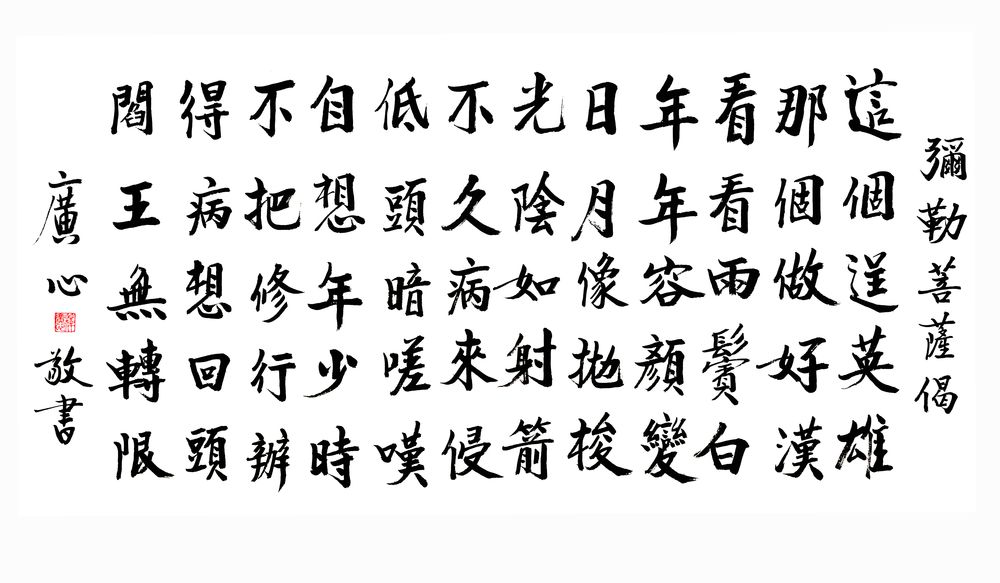 彌勒菩薩偈
這個逞英雄
那個做好漢
看看雨鬢白
年年容顏變
日月像拋梭
光陰如射箭
不久病來侵
低頭暗嗟嘆
自想年少時
不把修行辦
得病想回頭
閻王無轉限
廣心敬書